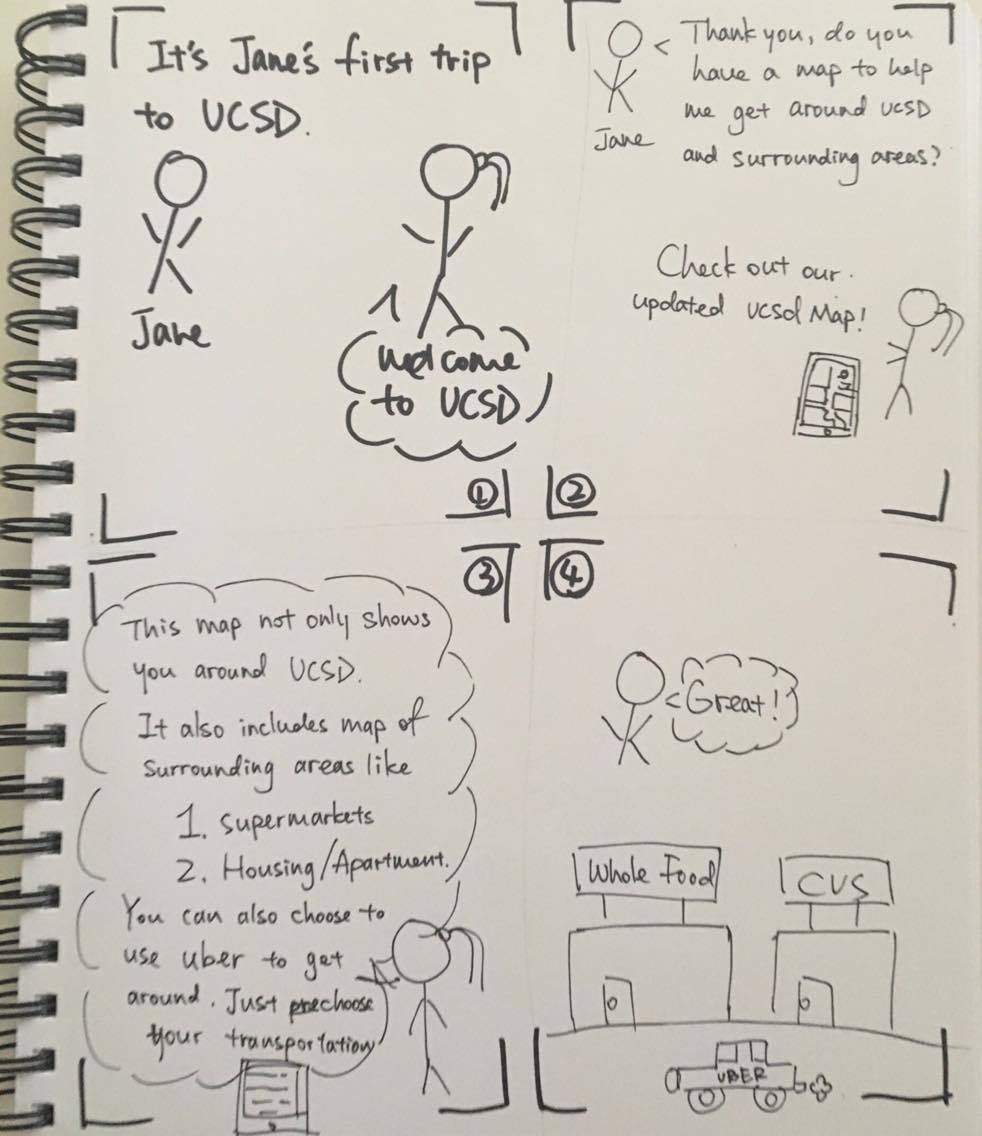 It's Jane's first trip
to UCSD.
Jane
Welcome
to UCSD
①
Thank you, do you
have a map to help
me get around UCSD
and surrounding areas?
Jane
Check out our.
updated UCSD Map!
②
③
This map not only shows
you around UCSD.
It also includes map of
surrounding areas like
1. Supermarkets
2. Housing/Apartment.
You can also choose to
use uber to get
around. Just prechoose
your transportation
④
Great!
Whole Food
CVS
UBER